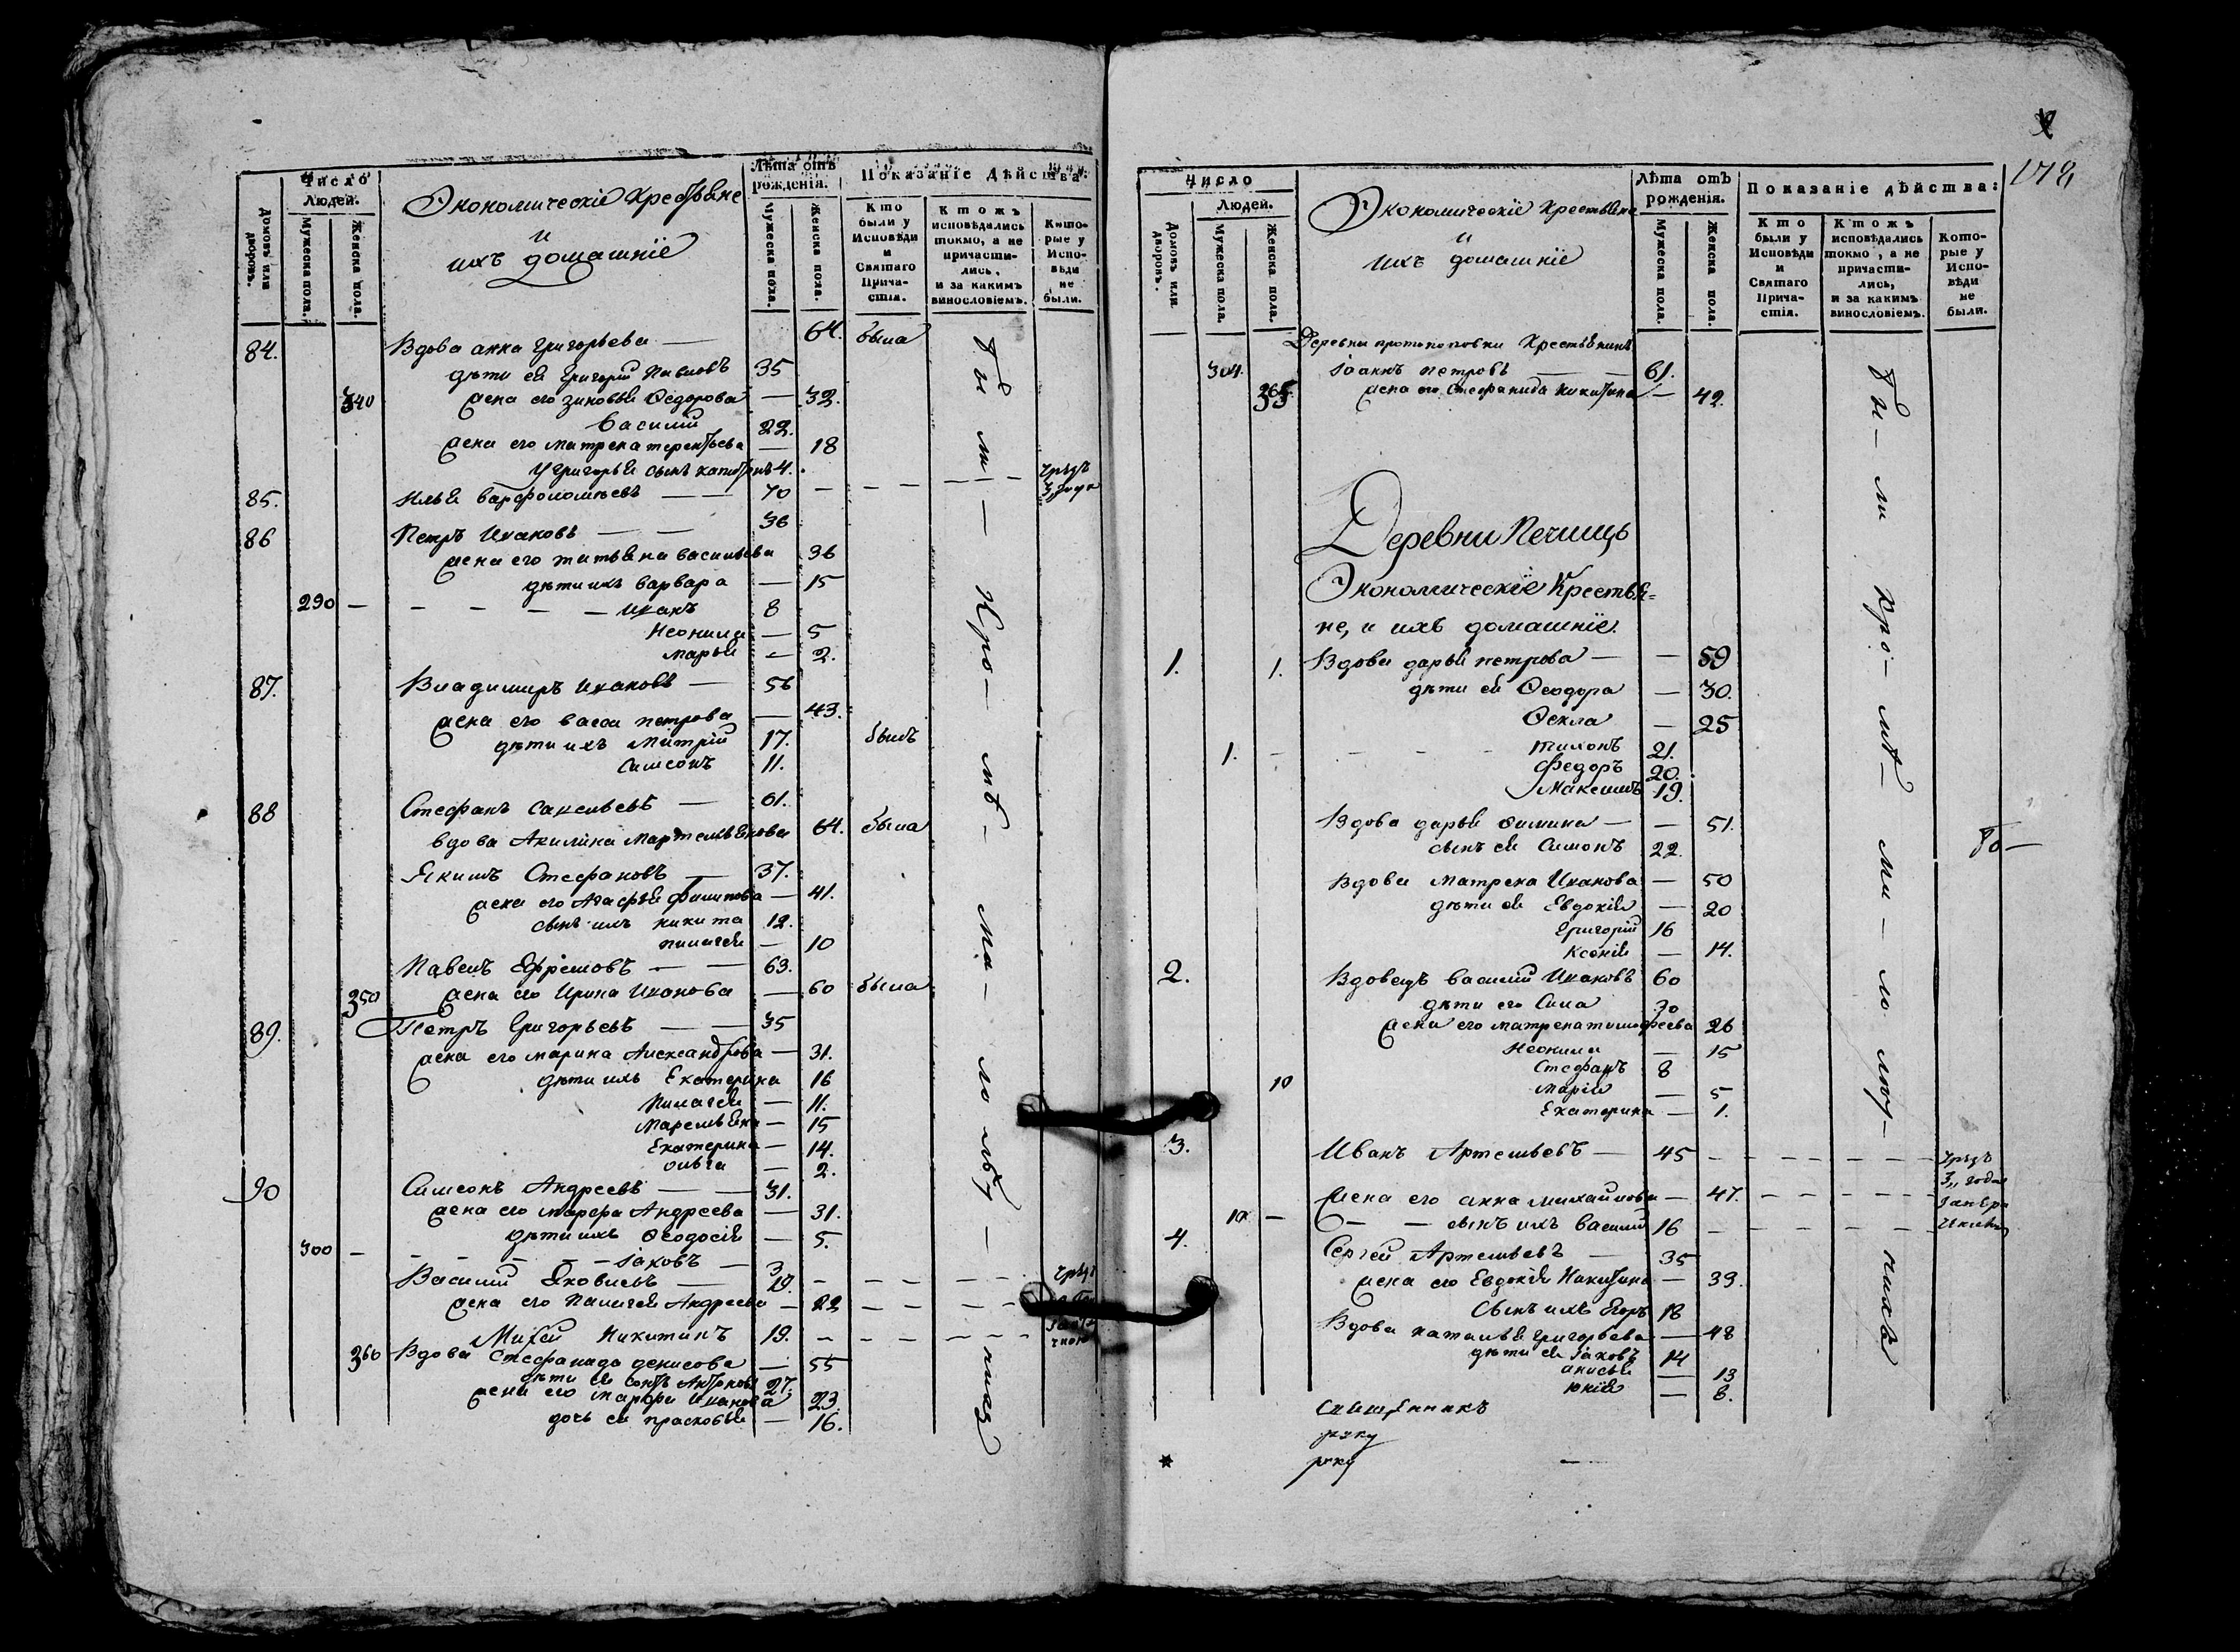 Число
Людей.
Домовъ или дворовъ.
Мужеска пола.
Женска пола.
Экономическіе Крестьяне
и
ихъ домашніе
Лѣта отъ рожденія.
Мужеска пола.
Женска пола.
Показаніе дѣйства:
Кто были у Исповѣди и Святаго Причастія.
Ктожъ исповѣдались токмо, а не причастились, и за какимъ винословіемъ.
Которые у Исповѣди не были.
84. Вдова анна григорьева — 64. была
дѣти ея григорій Павловъ 35
340 жена его зиновья Ѳедорова — 32.
василій 22.
жена его матрена терентьева — 18
у григорья сынъ капитонъ 4.
85. Илья варфоломѣевъ — — 70 чрезъ 3 года
86 Петръ Ивановъ — — 36
жена его татьяна васильева 36
дѣти ихъ варвара — 15
290 — — — — — иванъ 8
Неонила — 5
марья — 2.
87. Владимиръ Ивановъ — 56
жена его васса петрова — 43.
дѣти ихъ Митрій 17. былъ
Симеонъ 11.
88 Стефанъ савельевъ — 61.
вдова Акилина Мартемьянова 64. была
Якимъ Стефановъ — 37.
жена его Агафья филипова — 41.
сынъ ихъ никита 12.
пилагея — 10
Павелъ Ефремовъ — — 63.
350 жена его Ирина Иванова — 60 была
89. Петръ Григорьевъ — — 35
жена его марина Александрова — 31.
дѣти ихъ Екатерина 16
Пилагея — 11.
Маремьяна — 15
Екатерина — 14.
ольга — 2.
90 Симеонъ Андреевъ — — 31.
жена его марфа Андреева — 31.
дѣти ихъ Ѳеодосія — 5.
300 — — — — — Іаковъ — 3
Василій Яковлевъ — 19.
жена его Пилагея Андреева — 22
Михей Никитинъ 19.
360 Вдова Стефанида денисова — 55
дѣти ея Антонов 27.
жена его марфа Иванова 23.
дочь ея прасковья — 16.
172
Число
Людей.
Домовъ или дворовъ.
Мужеска пола.
Женска пола.
Экономическіе Крестьяне
и
ихъ домашніе
Лѣта отъ рожденія.
Мужеска пола.
Женска пола.
Показаніе дѣйства:
Кто были у Исповѣди и Святаго Причастія.
Ктожъ исповѣдались токмо, а не причастились, и за какимъ винословіемъ.
Которые у Исповѣди не были.
Деревни протопоповки Крестьянинъ
304. Іоаннъ петровъ — — 61.
жена его Стефанида никитина — 42.
Деревни Печищь
Экономическіе Крестья=
не, и ихъ домашніе.
1. 1. Вдова дарья петрова — — 59
дѣти ея Ѳеодора — 30.
Ѳекла — 25
1. — — — — тихонъ 21.
Федоръ 20.
Максимъ 19.
Вдова дарья — — 51.
сынъ ея Симонъ 22.
Вдова Матрена Иванова — 50
дѣти ея Евдокія — 20
Григорій 16
Ксенія — 14.
2. Вдовецъ василій Ивановъ 60
дѣти его Сила 30
жена его матрена тимофеева 26
Неонила — 15
Стефанъ 8
10 Марія — 5
Екатерина — 1.
3. Иванъ Артемьевъ — 45 чрезъ 3 года
жена его анна михайлова — 47.
10 — — — сынъ ихъ василій 16
4. Сергей Артемьевъ — 35
жена его Евдокія Никитина — 39.
Сынъ ихъ Егоръ 18
Вдова наталья григорьева — 48
дѣти ея Іаковъ 14
анисья — 13
— 8.